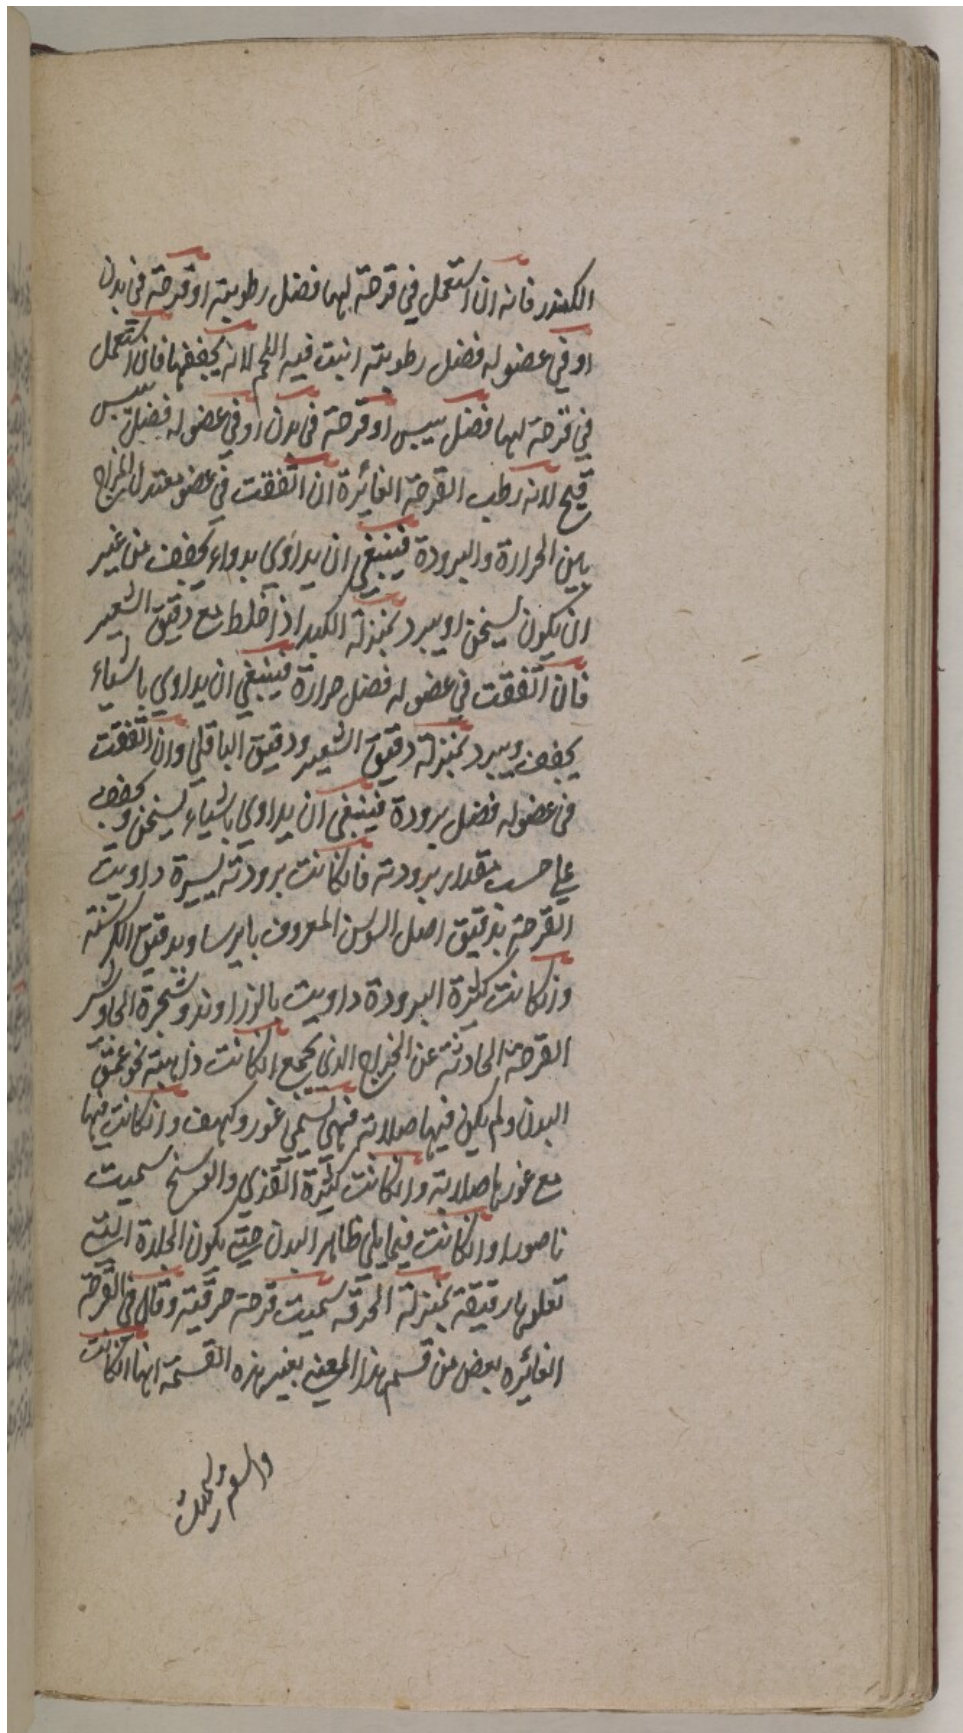 الكندر فانه ان استعمل في قرحة لها فضل رطوبته او قرحة في بدن
او في عضو له فضل رطوبته انبت فيه اللحم لانه يجففها فان استعمل
في قرحة لها فضل يبس او قرحة في بدن او في عضو له فضل يبس
قيح لانه رطب القرحة الغائرة ان اتفقت في عضو معتدل المزاج
بين الحرارة والبرودة فينبغي ان يداوي بدواء يجفف من غير
ان يكون يسخن او يبرد بمنزلة الكندر اذا خلط مع دقيق الشعير
فان اتفقت في عضو له فضل حرارة فينبغي ان يداوي باشياء
يجفف ويبرد بمنزلة دقيق الشعير ودقيق الباقلي وان اتفقت
في عضو له فضل برودة فينبغي ان يداوي باشياء يسخن ويجفف
علي حسب مقدار برودته فان كانت برودته يسيرة داويت
القرحة بدقيق اصل السوسن المعروف بايرسا وبدقيق الكرسنه
وان كانت كثرة البرودة داويت بالزراوند وشجرة الجاوشير
القرحة الحادثة عن الخراج الذي يجمع ان كانت ذاهبة نحو عمق
البدن ولم يكن فيها صلابة فهي تسمي غور وكهف وان كانت فيها
مع غورها صلابة وان كانت كثرة القذي والوسخ سميت
ناصورا وان كانت فيما يلي ظاهر البدن حتي يكون الجلدة التي
تعلوها رقيقة بمنزلة الخرقه سميت قرحة خرقية وقال في القرحة
الغائره بعض من قسم هذا المعني بغير هذه القسمة انها ان كانت